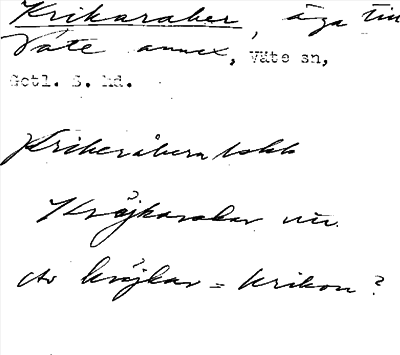 Krikaraker, äga till
Väte annex, Väte sn,
Gotl. S. hd.
Krikeråkern
Kröjkarakar nu.
Av kröjkar = krikon?